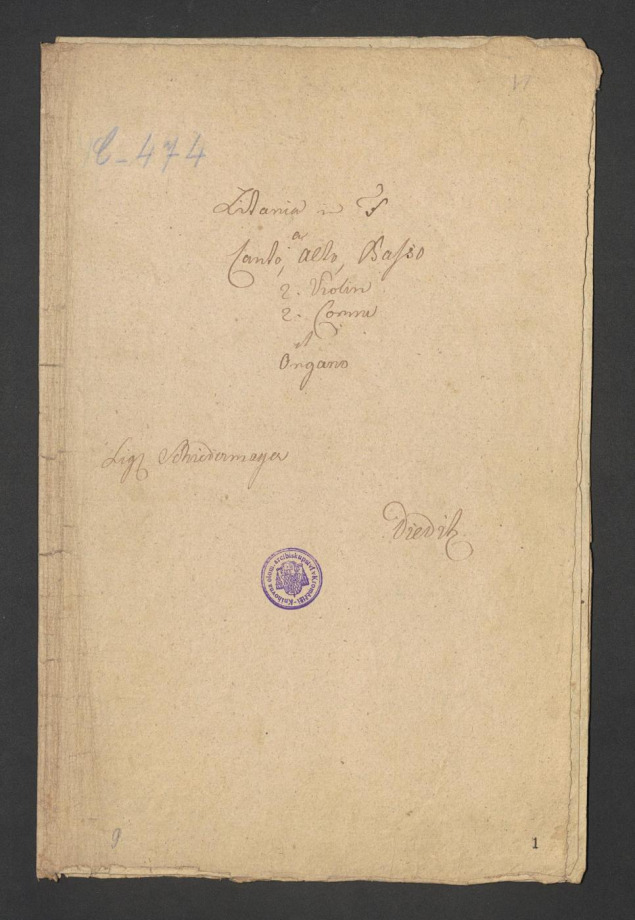 C-474
Litania in F
a
Canto, Alto, Basso
2. Violin
2. Cornu
et
Organo
Sigr Schiedermayer
Diedik
Knihovna olom. arcibiskupství v Kroměříži
9
1